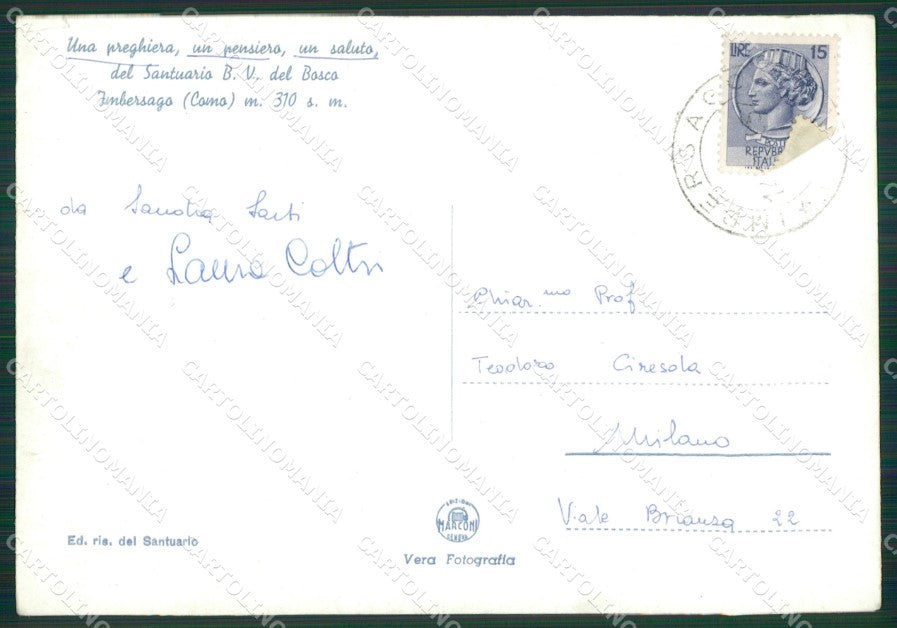 Una preghiera, un pensiero, un saluto,
del Santuario B. V. del Bosco
Imbersago (Como) m. 310 s. m.
LIRE 15
REPVBB
ITALI
IMBERSAGO
da Sandra Sarti
e Laura Coltri
Chiar.mo Prof
Teodoro Ciresola
Milano
Viale Brianza 22
EDIZIONI
MARCONI
GENOVA
Ed. ris. del Santuario
Vera Fotografia
CARTOLINOMANIA